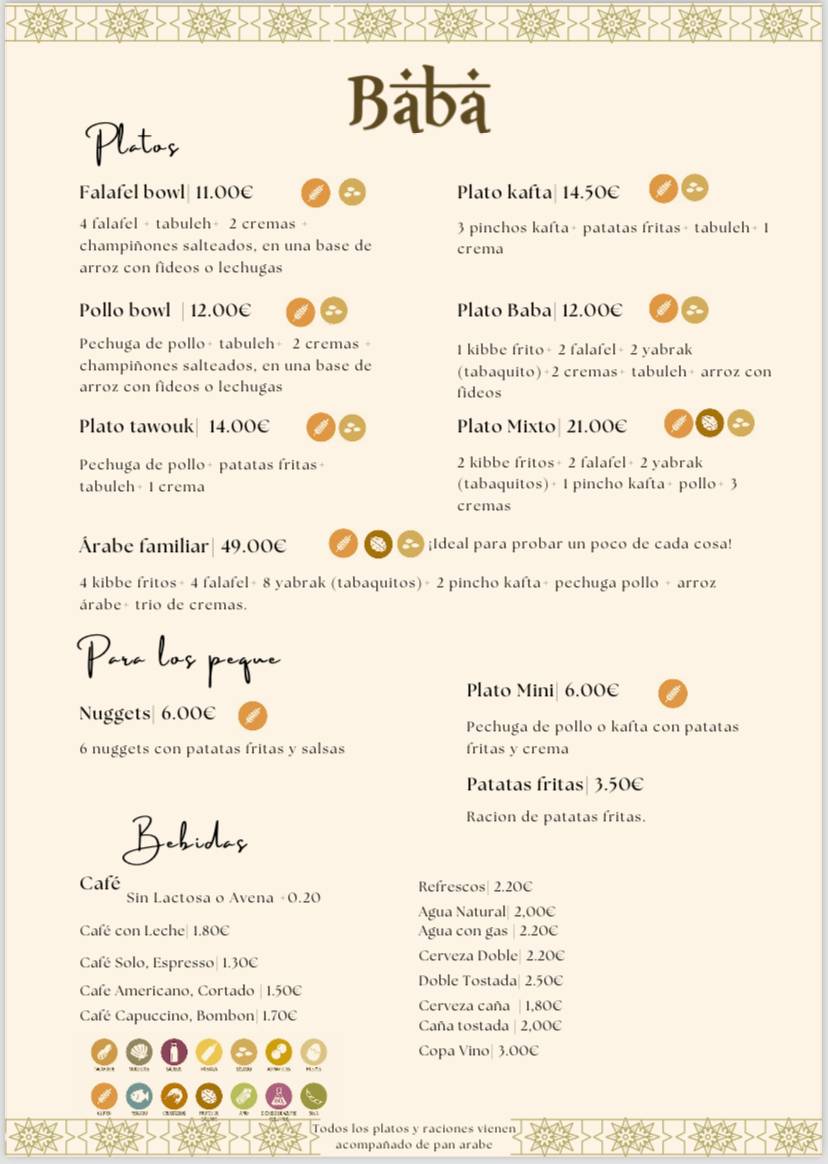 Baba
Platos
Falafel bowl| 11.00€
4 falafel + tabuleh+ 2 cremas +
champiñones salteados, en una base de
arroz con fideos o lechugas
Plato kafta| 14.50€
3 pinchos kafta+ patatas fritas+ tabuleh+ 1
crema
Pollo bowl | 12.00€
Pechuga de pollo+ tabuleh+ 2 cremas +
champiñones salteados, en una base de
arroz con fideos o lechugas
Plato Baba| 12.00€
1 kibbe frito+ 2 falafel+ 2 yabrak
(tabaquito)+2 cremas+ tabuleh+ arroz con
fideos
Plato tawouk| 14.00€
Pechuga de pollo+ patatas fritas+
tabuleh+ 1 crema
Plato Mixto| 21.00€
2 kibbe fritos+ 2 falafel+ 2 yabrak
(tabaquitos)+ 1 pincho kafta+ pollo+ 3
cremas
Árabe familiar| 49.00€
¡Ideal para probar un poco de cada cosa!
4 kibbe fritos+ 4 falafel+ 8 yabrak (tabaquitos)+ 2 pincho kafta+ pechuga pollo + arroz
árabe+ trio de cremas.
Para los peque
Nuggets| 6.00€
6 nuggets con patatas fritas y salsas
Plato Mini| 6.00€
Pechuga de pollo o kafta con patatas
fritas y crema
Patatas fritas| 3.50€
Racion de patatas fritas.
Bebidas
Café
Sin Lactosa o Avena +0.20
Café con Leche| 1.80€
Café Solo, Espresso| 1.30€
Cafe Americano, Cortado | 1.50€
Café Capuccino, Bombon| 1.70€
Refrescos| 2.20€
Agua Natural| 2,00€
Agua con gas | 2.20€
Cerveza Doble| 2.20€
Doble Tostada| 2.50€
Cerveza caña | 1,80€
Caña tostada | 2,00€
Copa Vino| 3.00€
Todos los platos y raciones vienen
acompañado de pan arabe